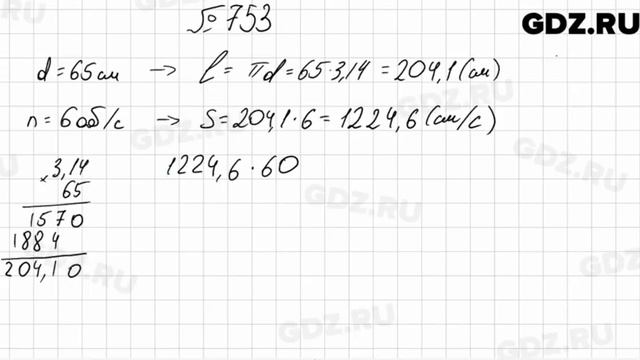 №753
GDZ.RU
d = 65 см → l = πd = 65 · 3,14 = 204,1 (см)
n = 6 об/с → S = 204,1 · 6 = 1224,6 (см/с)
× 3,14
65
1570
1884
204,10
1224,6 · 60
GDZ.RU
GDZ.RU
GDZ.RU
GDZ.RU
GDZ.RU
GDZ.RU
GDZ.RU
GDZ.RU